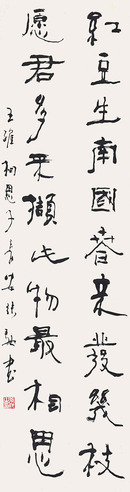 紅豆生南國春來發幾枝
願君多采擷此物最相思
王維相思子